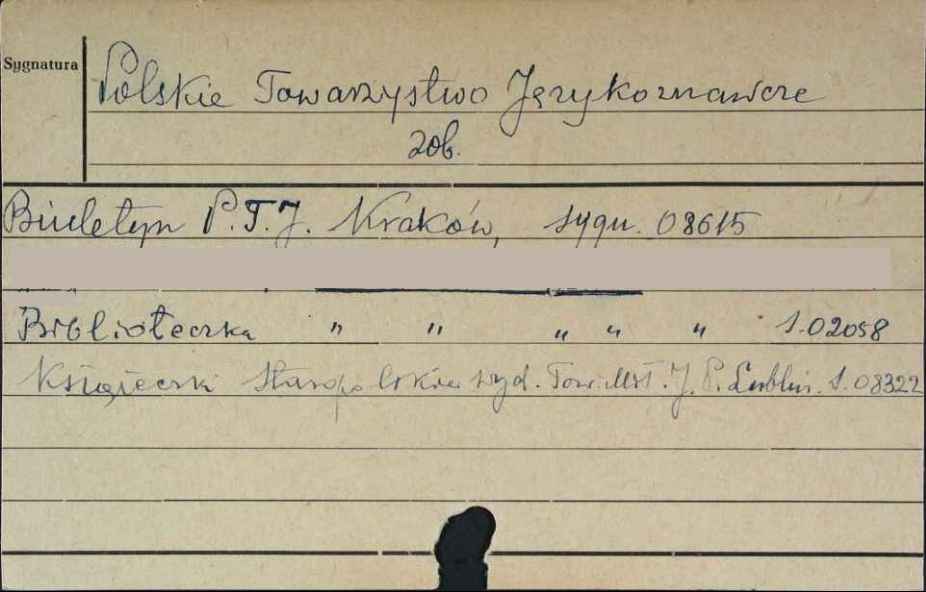 Sygnatura
Polskie Towarzystwo Językoznawcze
zob.
Biuletyn P.T.J. Kraków, sygn. 08615
Biblioteczka " " " " " s.02058
Książeczki Staropolskie wyd. Tow. Mił. J. P. Lublin. s. 08322